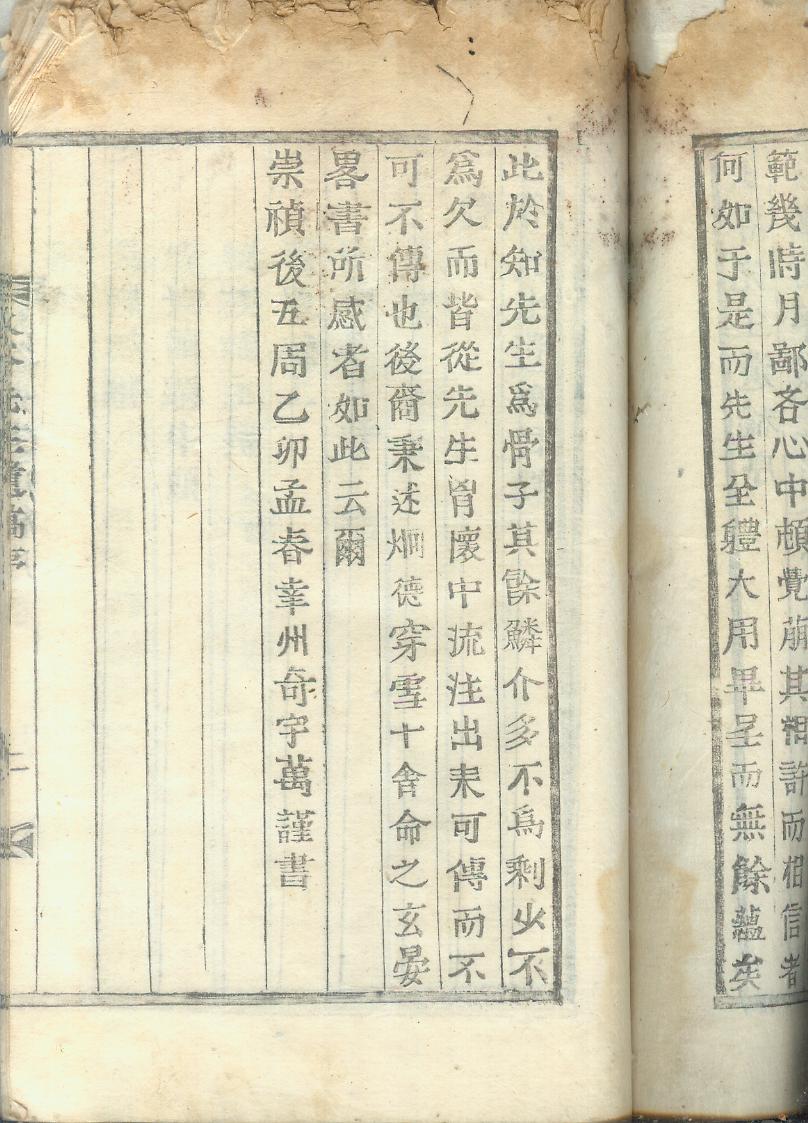 範幾時月鄙吝心中頓覺崩其相許而相信者
何如于是而先生全體大用畢呈而無餘蘊矣
此於知先生爲骨子其餘鱗介多不爲剩少不
爲欠而皆從先生胷懷中流注出來可傳而不
可不傳也後裔秉述炯德穿雪十舍命之玄晏
畧書所感者如此云爾
崇禎後五周乙卯孟春幸州奇宇萬謹書
遺稿序